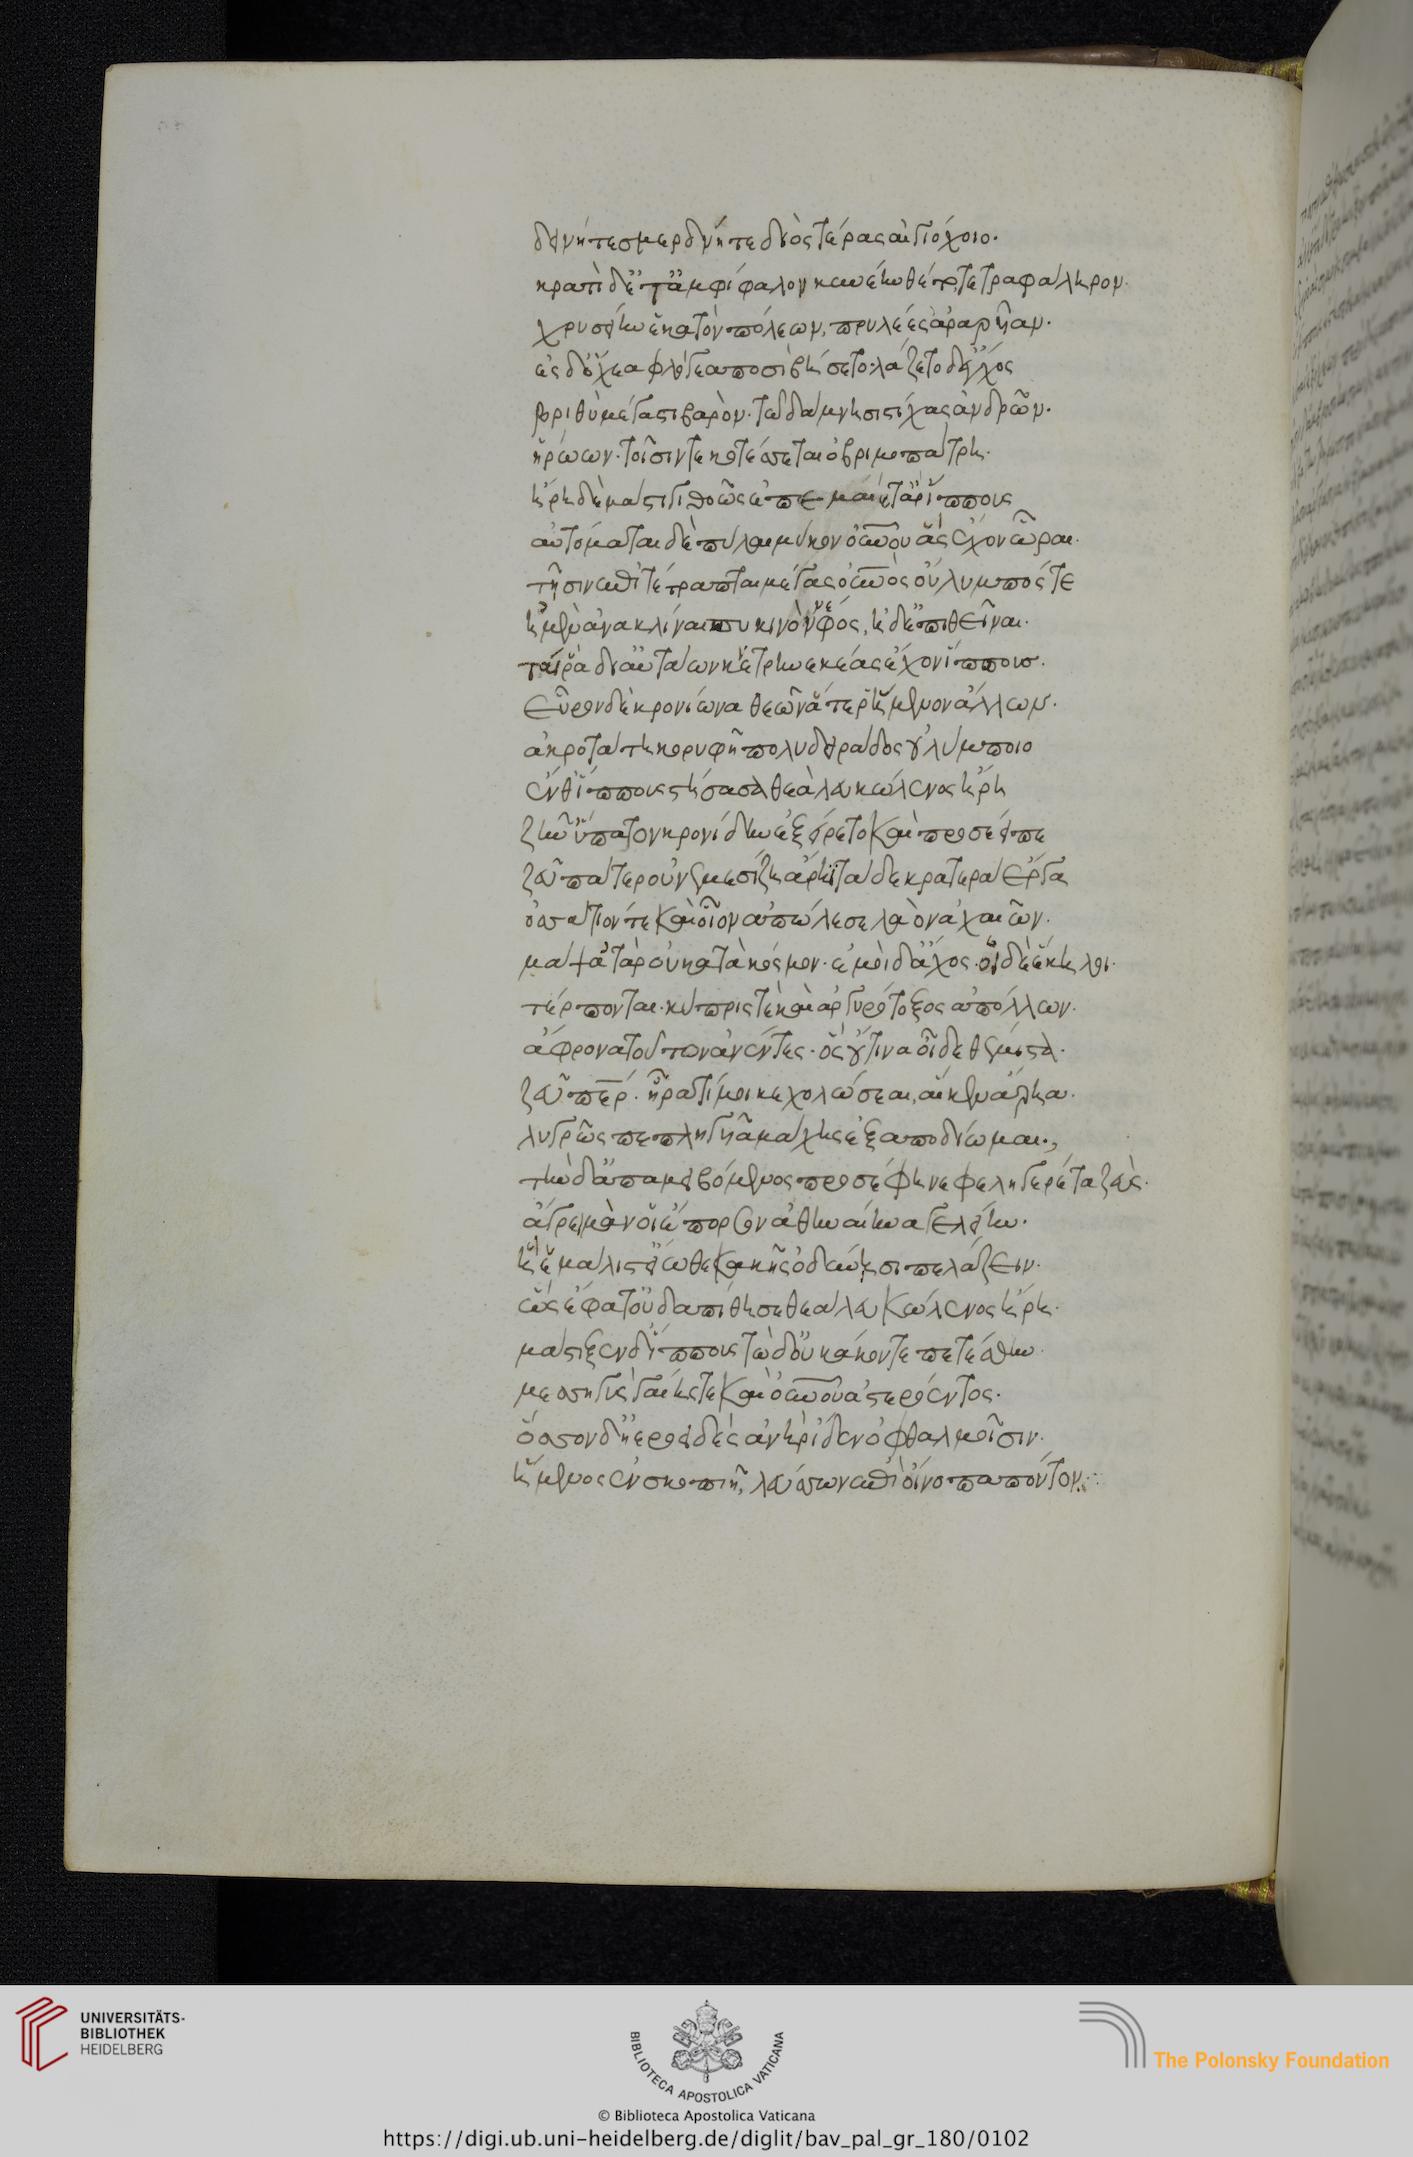 δεινή τε σμερδνή τε διὸς τέρας αἰγιόχοιο.
κρατὶ δ' ἔπ' ἀμφίφαλον κυνέην θέτο τετραφάληρον.
χρυσείην ἑκατὸν πόλεων, πρυλέες ἀραρῆαν.
ἐς δ' ὄχεα φλόγεα ποσὶ βήσετο· λάζετο δ' ἔγχος
βριθὺ μέγα στιβαρὸν. τῶ δάμνησι στίχας ἀνδρῶν.
ἡρώων. τοῖσίν τε κοτέσεται ὀβριμοπάτρη.
ἥρη δὲ μάστιγι θοῶς ἐπεμαίετ' ἄρ' ἵππους
αὐτόμαται δὲ πύλαι μύκον οὐνου ἃς ἔχον ὧραι.
τῆς ἐπιτέτραπται μέγας οὐνὸς οὔλυμπός τε
ἠμὲν ἀνακλίναι πυκινὸν νέφος, ἠδ' ἐπιθεῖναι.
τῆ ῥα δι' αὐτάων κεντρηνεκέας ἔχον ἵππους.
εὗρον δὲ κρονίωνα θεῶν ἄτερ ἥμενον ἄλλων.
ἀκροτάτη κορυφῆ πολυδειράδος οὐλύμποιο
ἔνθ' ἵππους στήσασα θεὰ λευκώλενος ἥρη
ζῆν' ὕπατον κρονίδην ἐξείρετο καὶ προσέειπε
ζεῦ πάτερ οὐ νεμεσίζη ἄρη τάδε κρατερὰ ἔργα
ὁσσάτιόν τε καὶ οἷον ἀπώλεσε λαὸν ἀχαιῶν.
μὰψ ἀτὰρ οὐ κατὰ κόσμον. ἐμοὶ δ' ἄχος. οἱ δὲ ἕκηλοι.
τέρπονται. κύπρις τε καὶ ἀργυρότοξος ἀπόλλων.
ἄφρονα τοῦτον ἀνέντες. ὃς οὔτινα οἶδε θέμιστα.
ζεῦ περ. ἦ ῥά τί μοι κεχολώσεαι, αἴ κεν ἄρηα.
λυγρῶς πεπληγυῖα μάχης ἐξαποδίωμαι.,
τὴν δ' ἀπαμειβόμενος προσέφη νεφεληγερέτα ζεὺς.
ἄγρει μάν οἱ ἔπορσον ἀθηναίην ἀγελείην.
ἥ ἑ μάλιστ' εἴωθε κακῆς ὀδύνησι πελάζειν.
ὣς ἔφατ' οὐδ' ἀπίθησε θεὰ λευκώλενος ἥρη.
μάστιξεν δ' ἵππους τὼ δ' οὐκ ἄκοντε πετέσθην.
μεσσηγὺς γαίης τε καὶ οὐνου ἀστερόεντος.
ὅσσον δ' ἠεροειδὲς ἀνὴρ ἴδεν ὀφθαλμοῖσιν.
ἥμενος ἐν σκοπιῆ, λεύσσων ἐπὶ οἴνοπα πόντον.
UNIVERSITÄTS-
BIBLIOTHEK
HEIDELBERG
BIBLIOTECA APOSTOLICA VATICANA
The Polonsky Foundation
© Biblioteca Apostolica Vaticana
https://digi.ub.uni-heidelberg.de/diglit/bav_pal_gr_180/0102